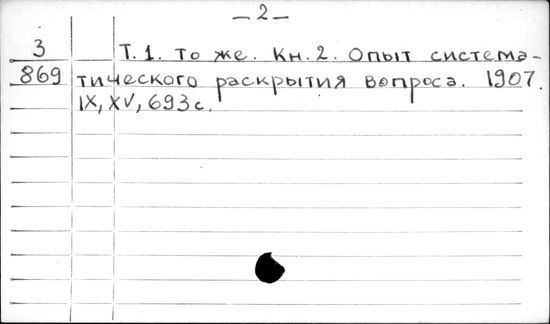 — 2 —
3 Т. 1. То же. Кн. 2. Опыт система-
869 тического раскрытия вопроса. 1907.
IX, XV, 693 с.